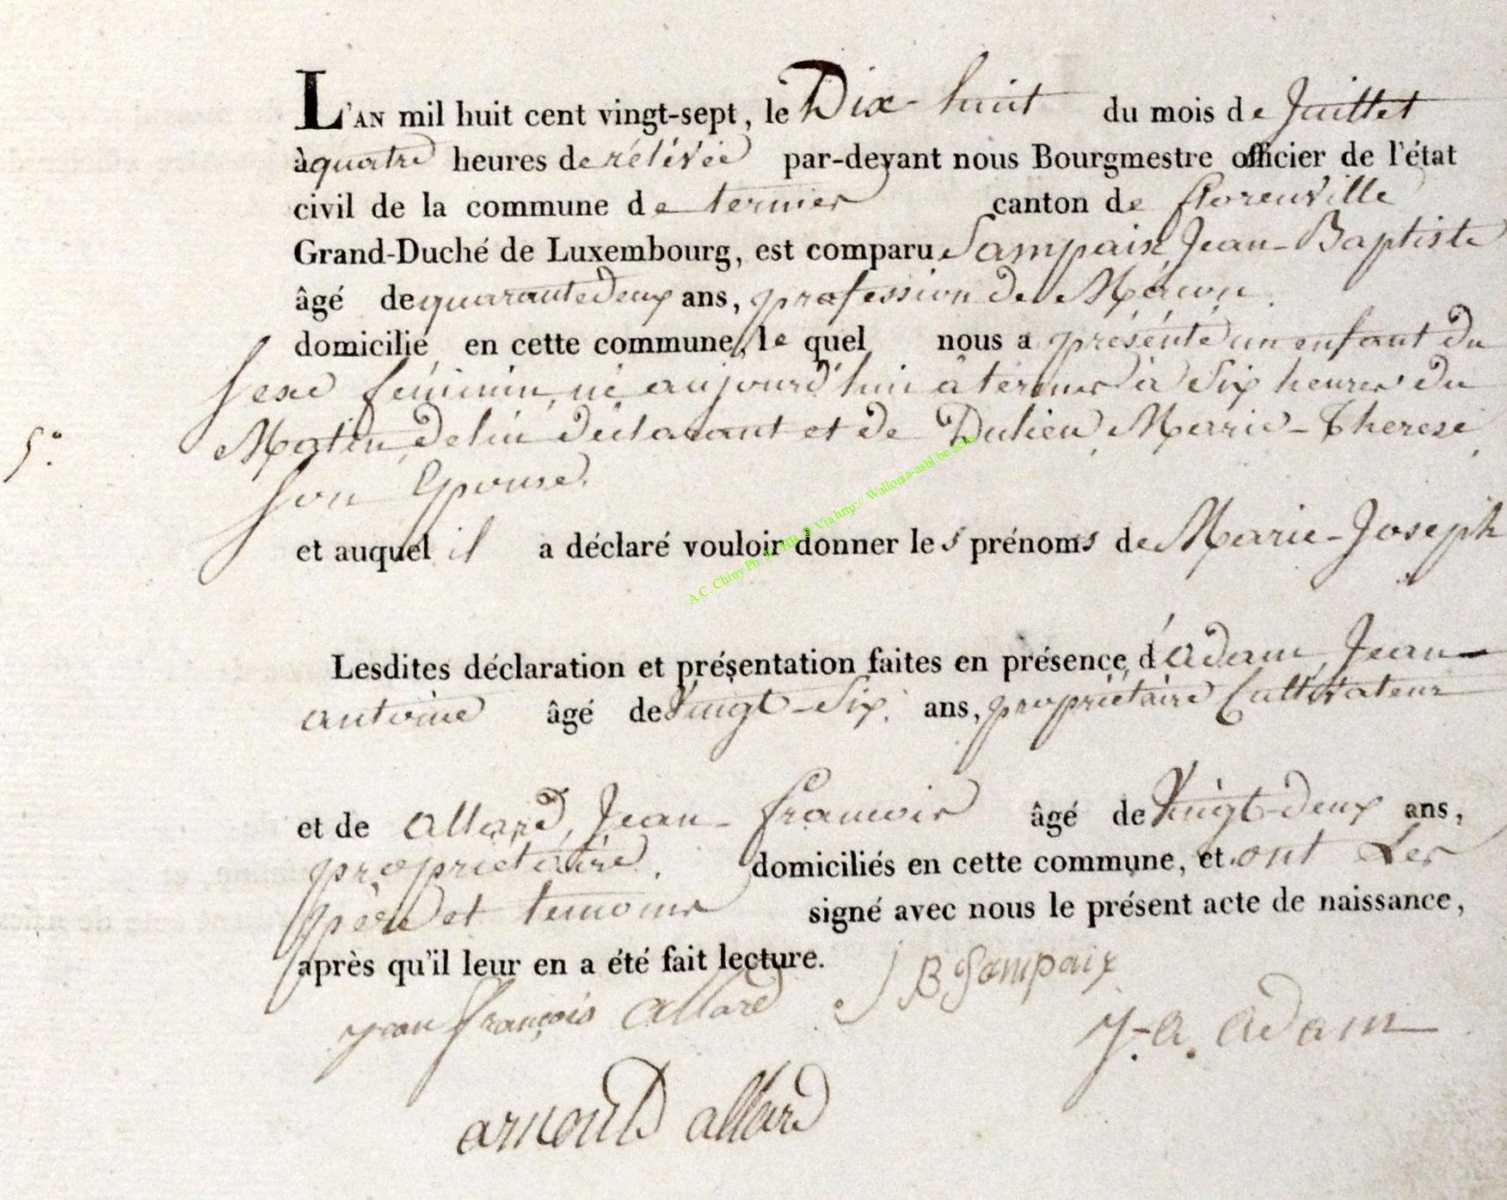 L'AN mil huit cent vingt-sept, le Dix-huit du mois de Juillet
à quatre heures de rélévée par-devant nous Bourgmestre officier de l'état
civil de la commune de termes canton de florenville
Grand-Duché de Luxembourg, est comparu Sampaix, Jean-Baptiste
âgé de quarante deux ans, profession de Maçon.
domicilié en cette commune, le quel nous a présenté un enfant du
sexe féminin, né aujourd'hui à termes à six heures du
5° Matin, de lui déclarant et de Dulieu, Marie-Therese,
son Epouse.
et auquel il a déclaré vouloir donner les prénoms de Marie-Joseph
Lesdites déclaration et présentation faites en présence d'adam, Jean
antoine âgé de Vingt-Six ans, propriétaire Cultivateur
et de allard, Jean-francois âgé de Vingt-deux ans,
propriétaire. domiciliés en cette commune, et ont Les
père et temoins signé avec nous le présent acte de naissance,
après qu'il leur en a été fait lecture.
jean françois allard J B Sampaix
J-a. adam
arnould allard